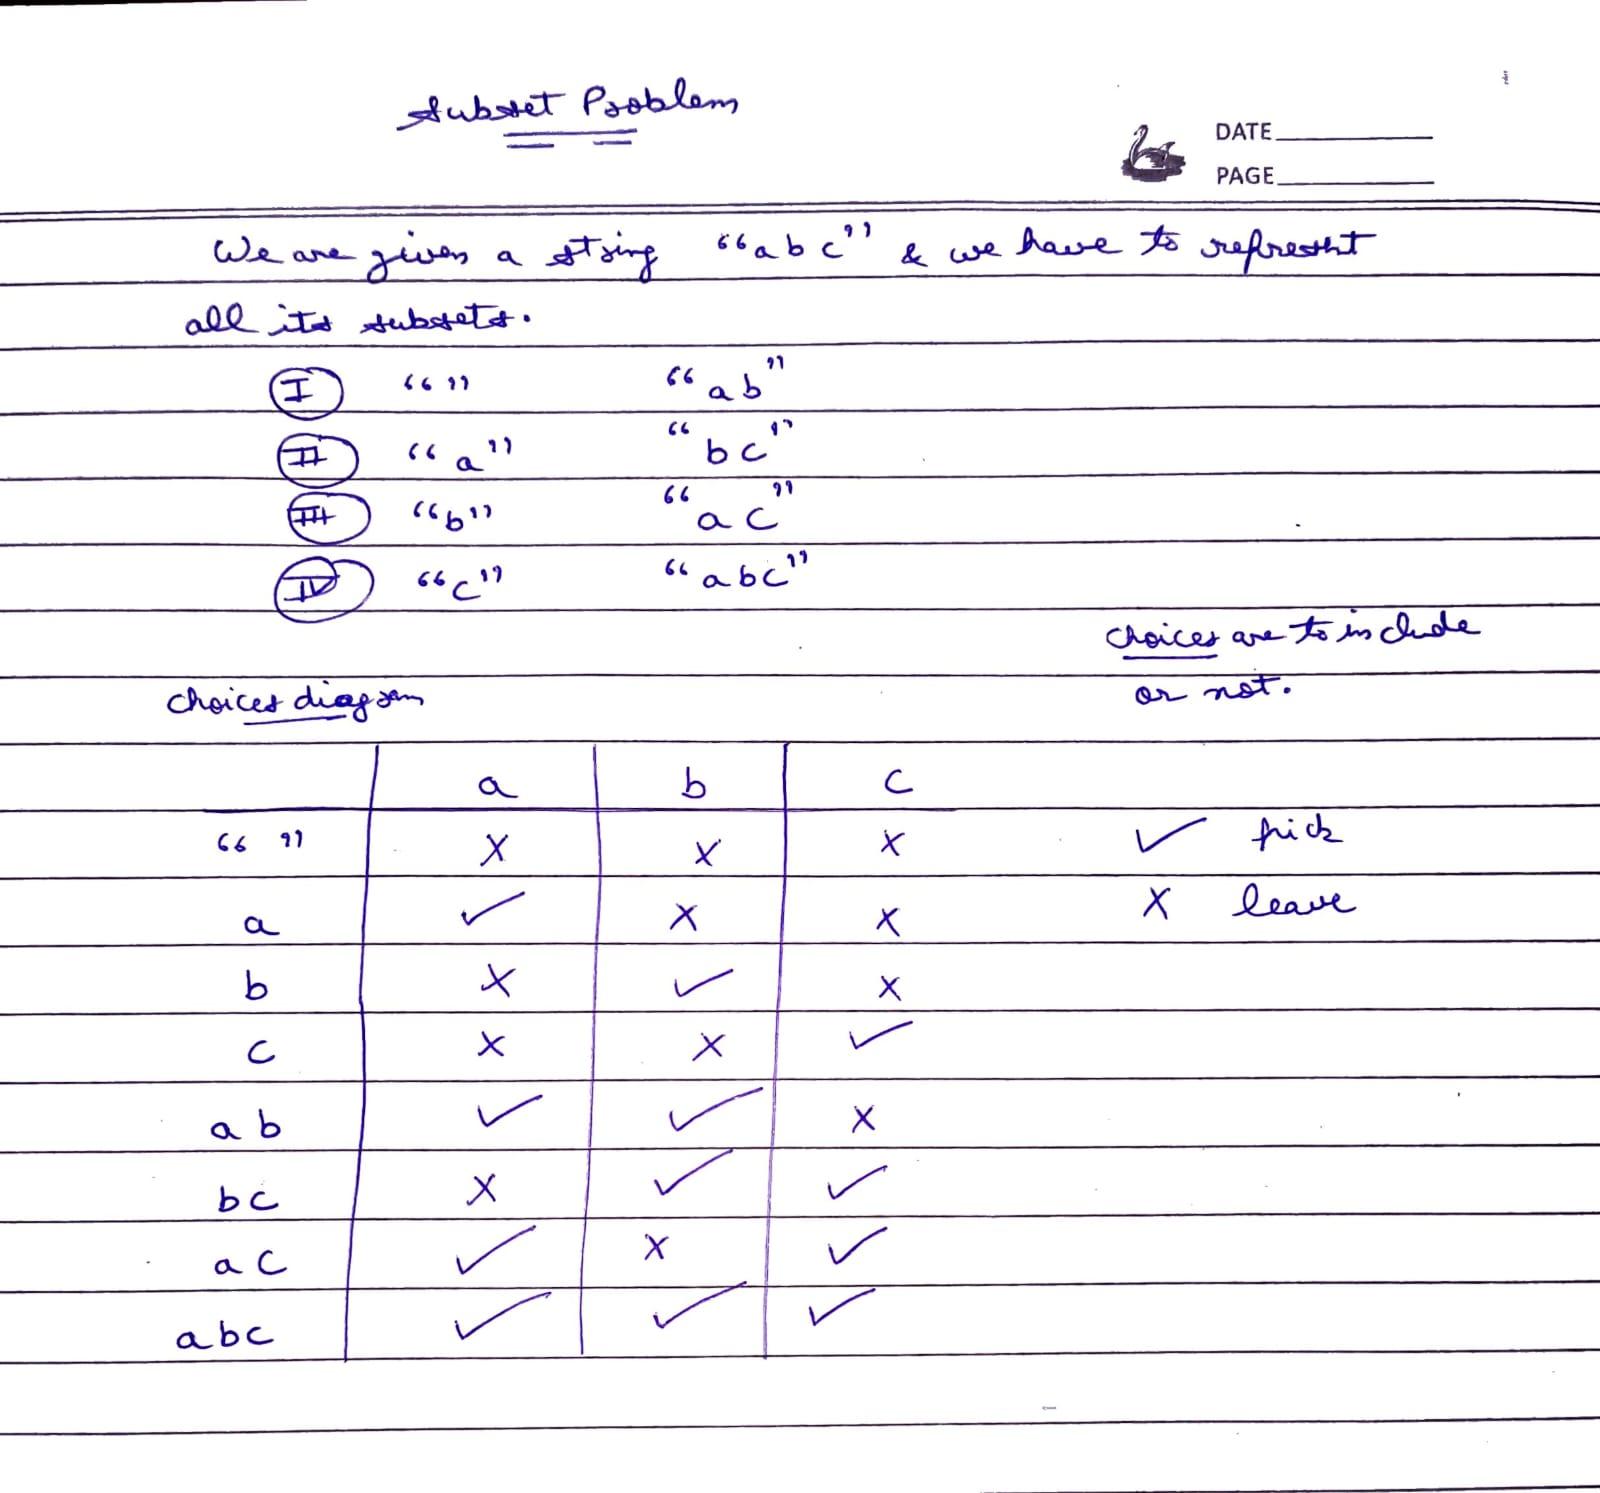 Subset Problem
DATE
PAGE
We are given a string “abc” & we have to represent
all its subsets.
I “ ” “ab”
II “a” “bc”
III “b” “ac”
IV “c” “abc”
choices are to include
or not.
choices diagram
a b c
“ ” X X X ✓ pick
a ✓ X X X leave
b X ✓ X
c X X ✓
ab ✓ ✓ X
bc X ✓ ✓
ac ✓ X ✓
abc ✓ ✓ ✓